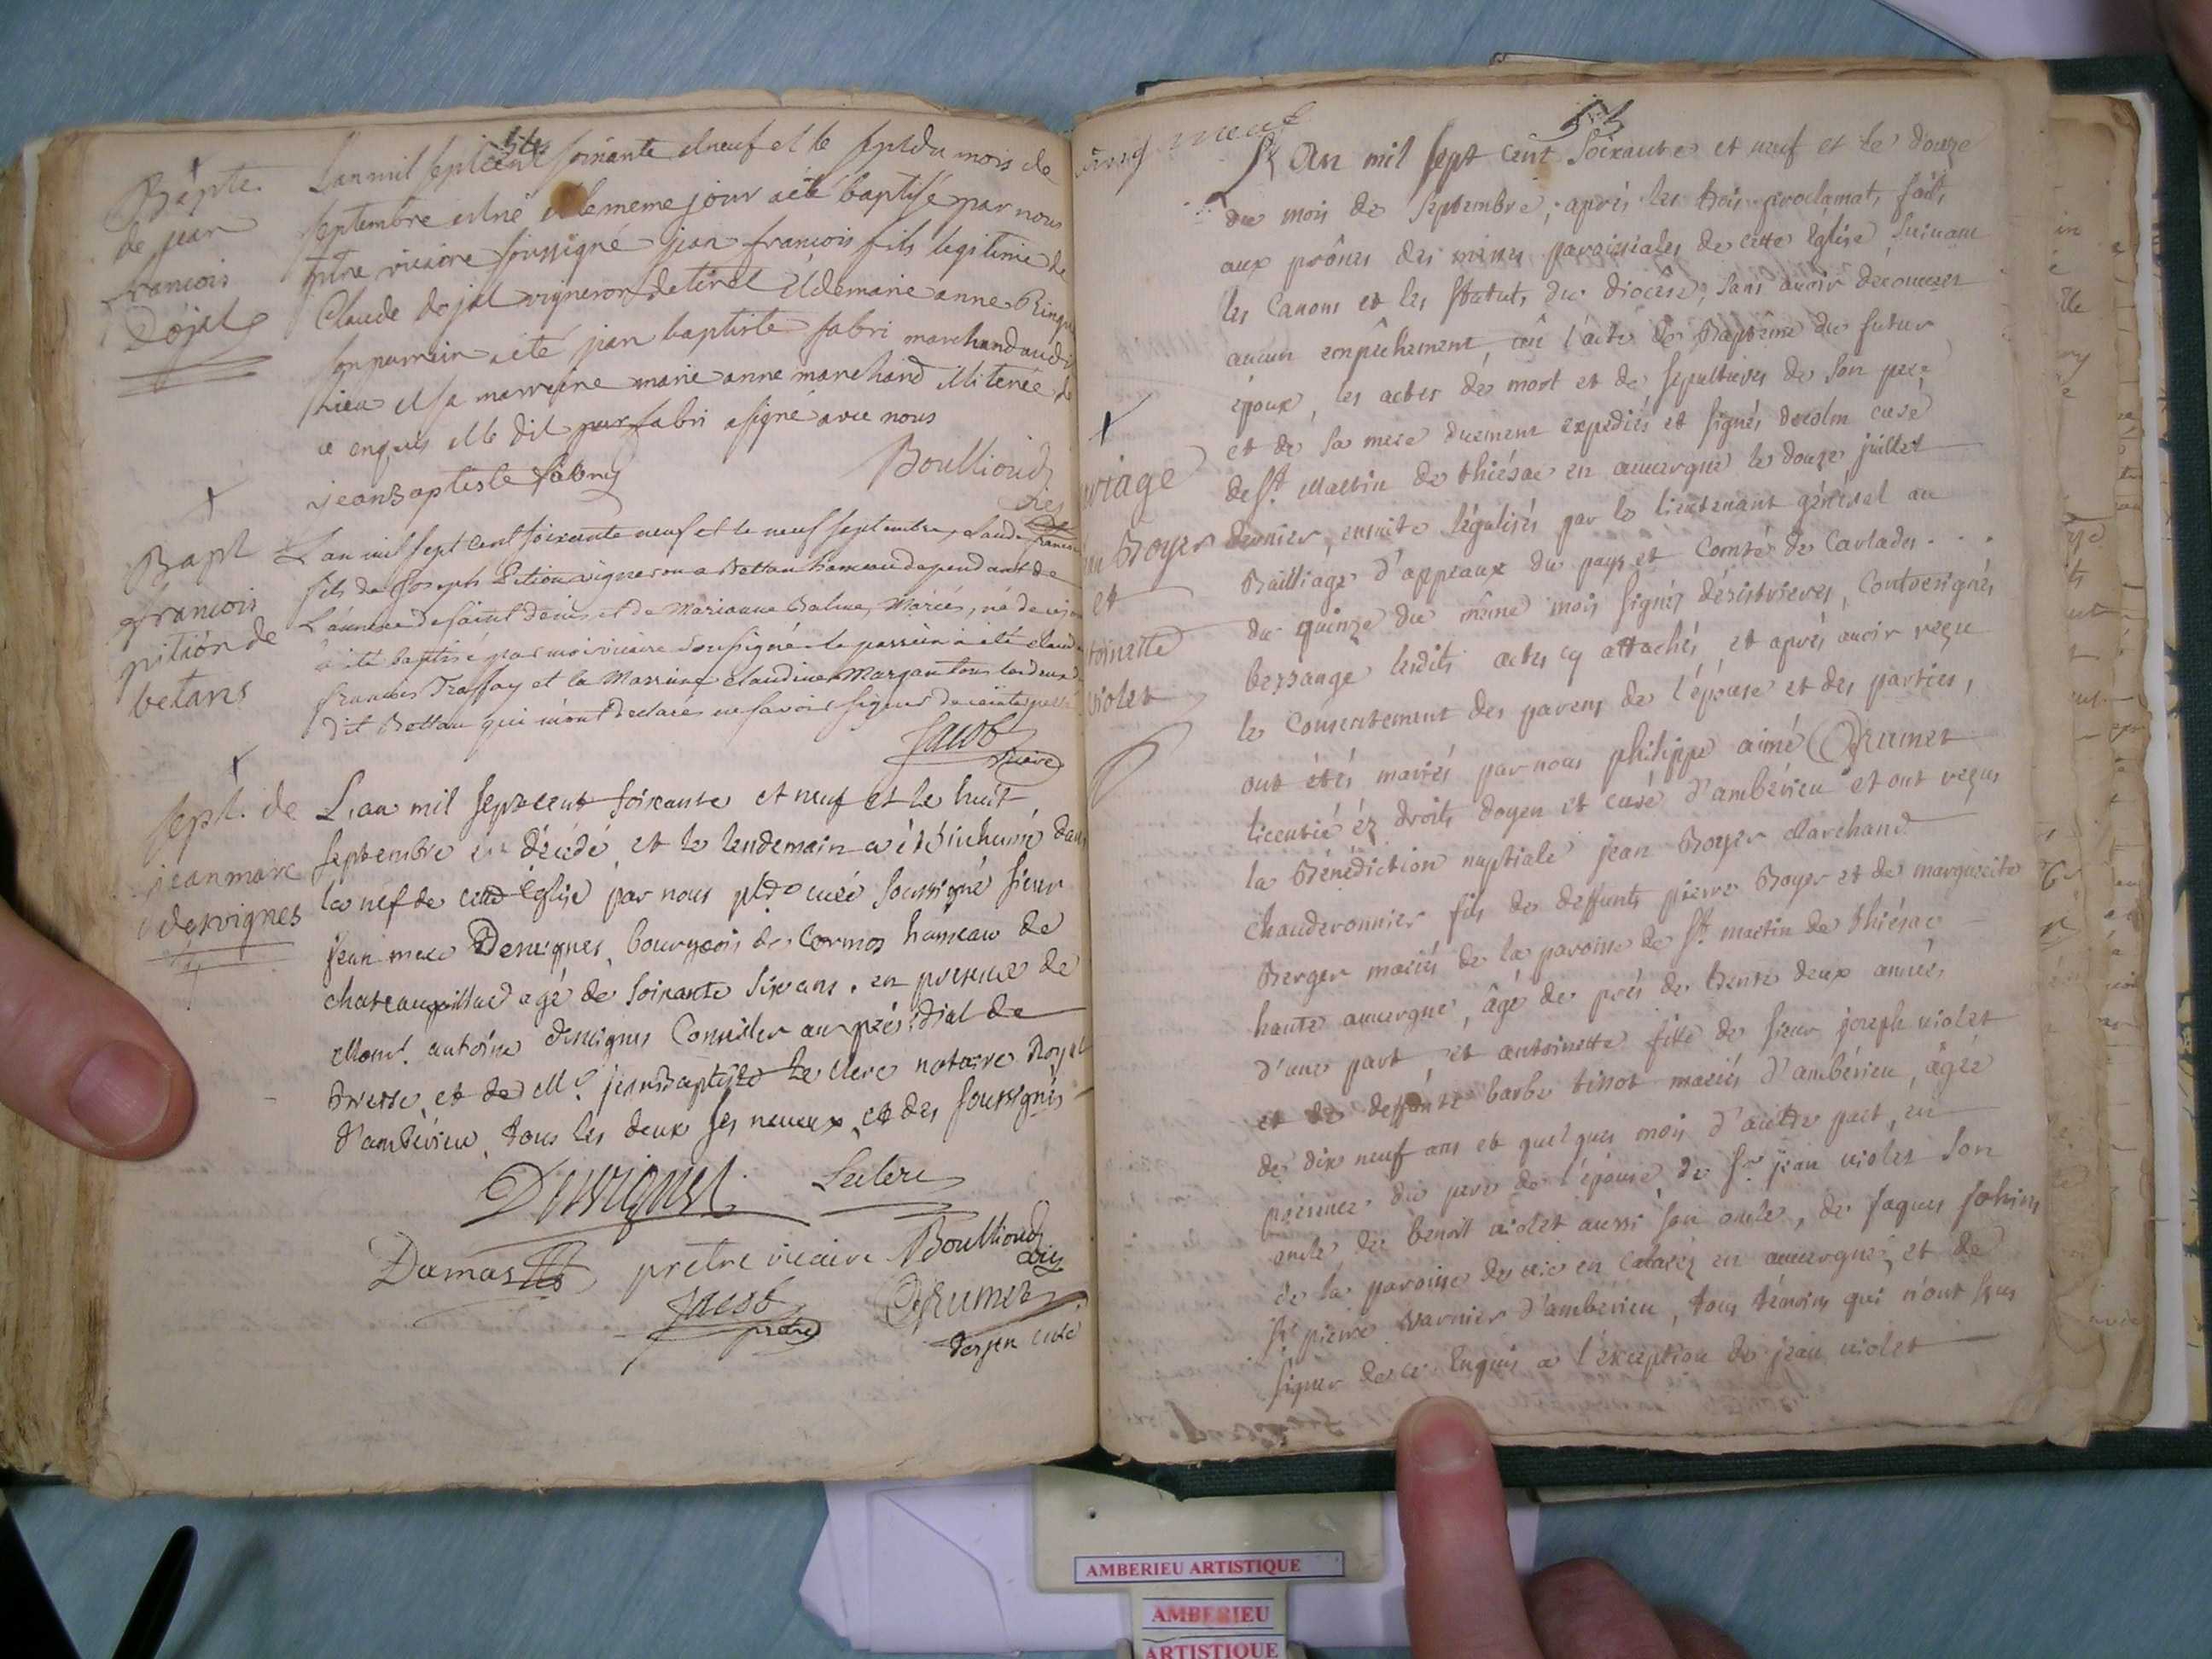 Bapte.
de jean
francois
Dejal
L'an mil sept cent soixante et neuf et le sept du mois de
septembre est né et le meme jour a été baptisé par nous
pretre vicaire soussigné jean francois fils legitime de
Claude dejal vigneron de tiret et de marie anne
son parrain a été jean baptiste fabri marchand audit
lieu et sa marreine marie anne marchand illiterée de
ce enquis elle dit fabri a signé avec nous
jean Baptiste fabry
Boullioud
Bapt
francois
pition de
betans
L'an mil sept cent soixante neuf et le neuf septembre, Claude francois
fils de Joseph Pition vigneron a Bettan hameau dependant de
L'annexe de saint denis et de Marianne Balme, Mariés, né de ce jour
a été baptisé par moi vicaire soussigné le parrain a été claude
francois et la Marrine claudine tous les deux
dit Bettan qui m'ont declaré ne savoir signer de ce interpellé
Jacob
vicaire
sept. de
jean marc
desvignes
L'an mil sept cent soixante et neuf et le huit
septembre est décédé, et le lendemain a été inhumé dans
la nef de cette Eglise par nous curé soussigné sieur
jean marc Desvignes, bourgeois de Cormoz hameau de
chateaugaillard agé de soixante six ans. en presence de
Monsr. antoine desvignes Conseiller au présidial de
Bresse, et de Me. jean Baptiste Le Clerc notaire Royal
d'ambérieu, tous les deux ses neveux, et des soussignés
Desvignes Leclerc
Dumas prêtre vicaire Boullioud
vic
Jacob
prêtre
Brumet
doyen curé
cinq neuf
53
L'An mil sept cent soixante et neuf et le douze
du mois de septembre, après les trois proclamat. faits
aux prônes des messes paroissiales de cette Eglise, suivant
les Canons et les Statuts du diocèse, sans avoir découvert
aucun empêchement, vû l'acte de Baptême du futur
époux, les actes de mort et de sepultures de son pere
et de sa mere duement expediés et signés curé
de St. Martin de thiésac en auvergne le douze juillet
dernier, ensuite légalisés par le lieutenant général au
Bailliage d'appeaux du pays et Comté de Carlades . . .
du quinze du même mois signés, Contresignés
lesdits actes cy attachés, et après avoir reçu
le Consentement des parens de l'épouse et des parties,
ont étés mariés par nous philippe aimé Brumet
licentié ez droits doyen et curé d'ambérieu et ont reçus
la Bénédiction nuptiale jean Boyer Marchand
chauderonnier fils de deffunts pierre Boyer et de marguerite
Berger mariés de la paroisse de St. martin de thiésac
haute auvergne, âgé de près de trente deux années
d'une part, et antoinette fille de sieur joseph violet
et de deffunte barbe tissot mariés d'ambérieu, agée
de dix neuf ans et quelques mois d'autre part, en
presence du pere de l'épouse, de Sr. jean violet son
oncle, de benoit violet aussi son oncle, de jaques
de la paroisse de vic en en auvergne, et de
Sr. pierre varnier d'ambérieu, tous témoins qui n'ont sçus
signer de ce Enquis a l'exception de jean violet
ariage
Boyer
et
toinette
violet
AMBERIEU ARTISTIQUE
AMBERIEU
ARTISTIQUE